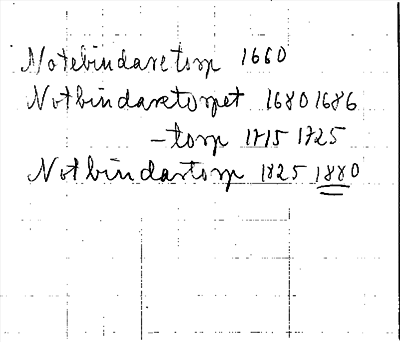 Notebindaretorp 1660
Notbindaretorpet 1680 1686
-torp 1715 1725
Notbindartorp 1825 1880